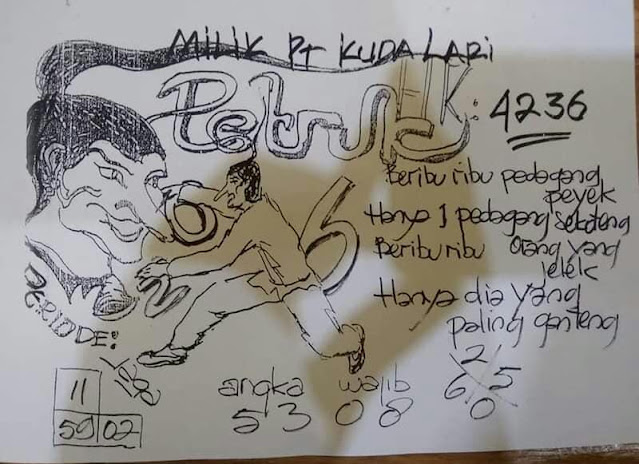 MILIK PT KUDA LARI
Petruk
HK: 4236
Beribu ribu pedagang
peyek
Hanya 1 pedagang sekoteng
Beribu ribu orang yang
jelek
Hanya dia yang
paling ganteng
6
11
59 02
angka wajib
5 3 0 8
2
6 5
0